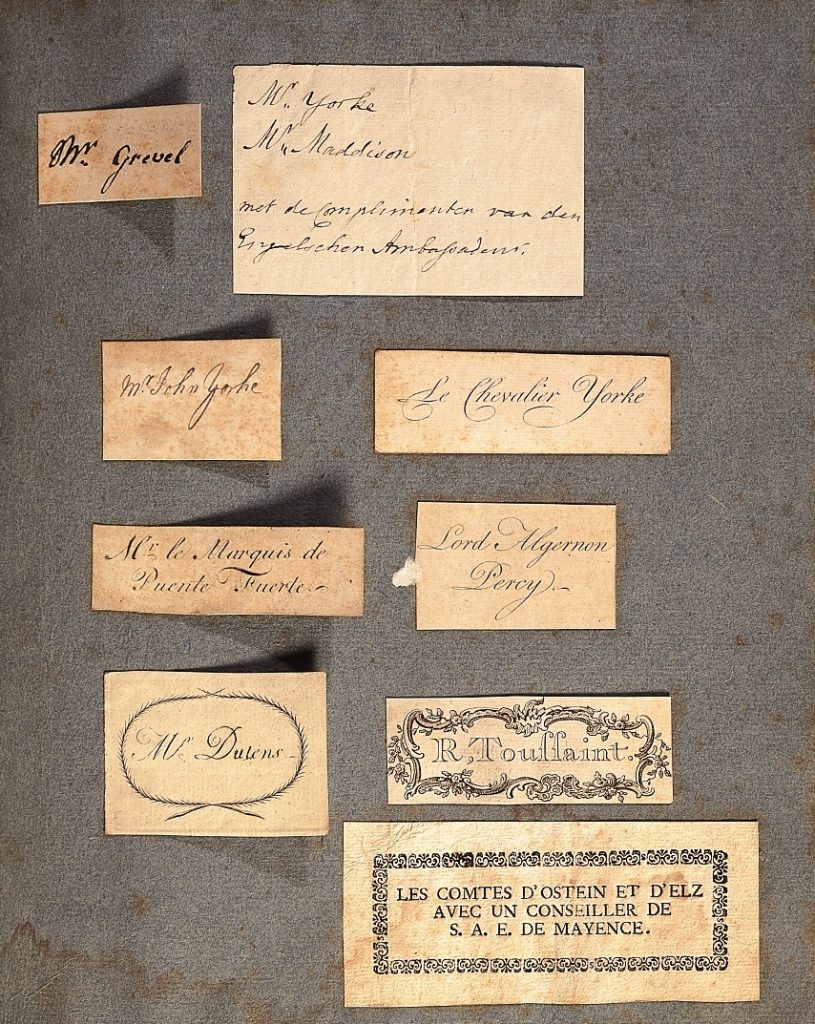 Mr. Grevel
Mr. Yorke
Mr. Maddison
met de Complimenten van den
Engelschen Ambaſsadeur.
Mr. John Yorke
Le Chevalier Yorke
Mr. le Marquis de
Puente Fuerte.
Lord Algernon
Percy.
Mr. Dutens
R, Touſſaint.
LES COMTES D'OSTEIN ET D'ELZ
AVEC UN CONSEILLER DE
S. A. E. DE MAYENCE.